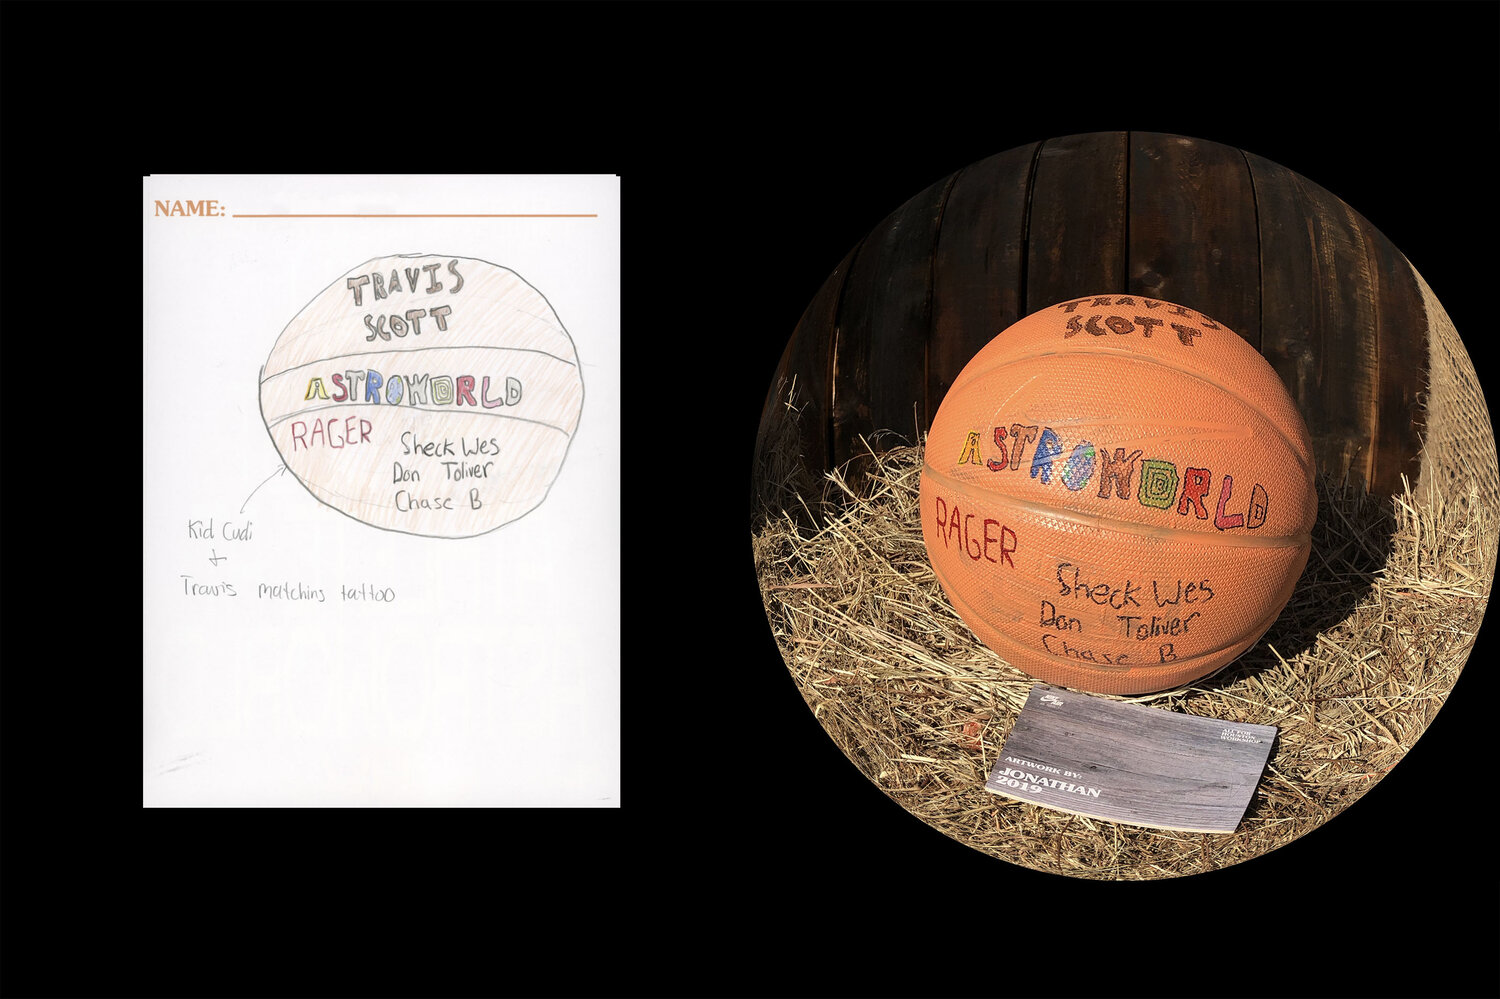 NAME:
TRAVIS
SCOTT
ASTROWORLD
RAGER
Sheck Wes
Don Toliver
Chase B
Kid Cudi
+
Travis matching tattoo
TRAVIS
SCOTT
ASTROWORLD
RAGER
Sheck Wes
Don Toliver
Chase B
ALL FOR
HOUSTON
WORKSHOP
ARTWORK BY:
JONATHAN
2019